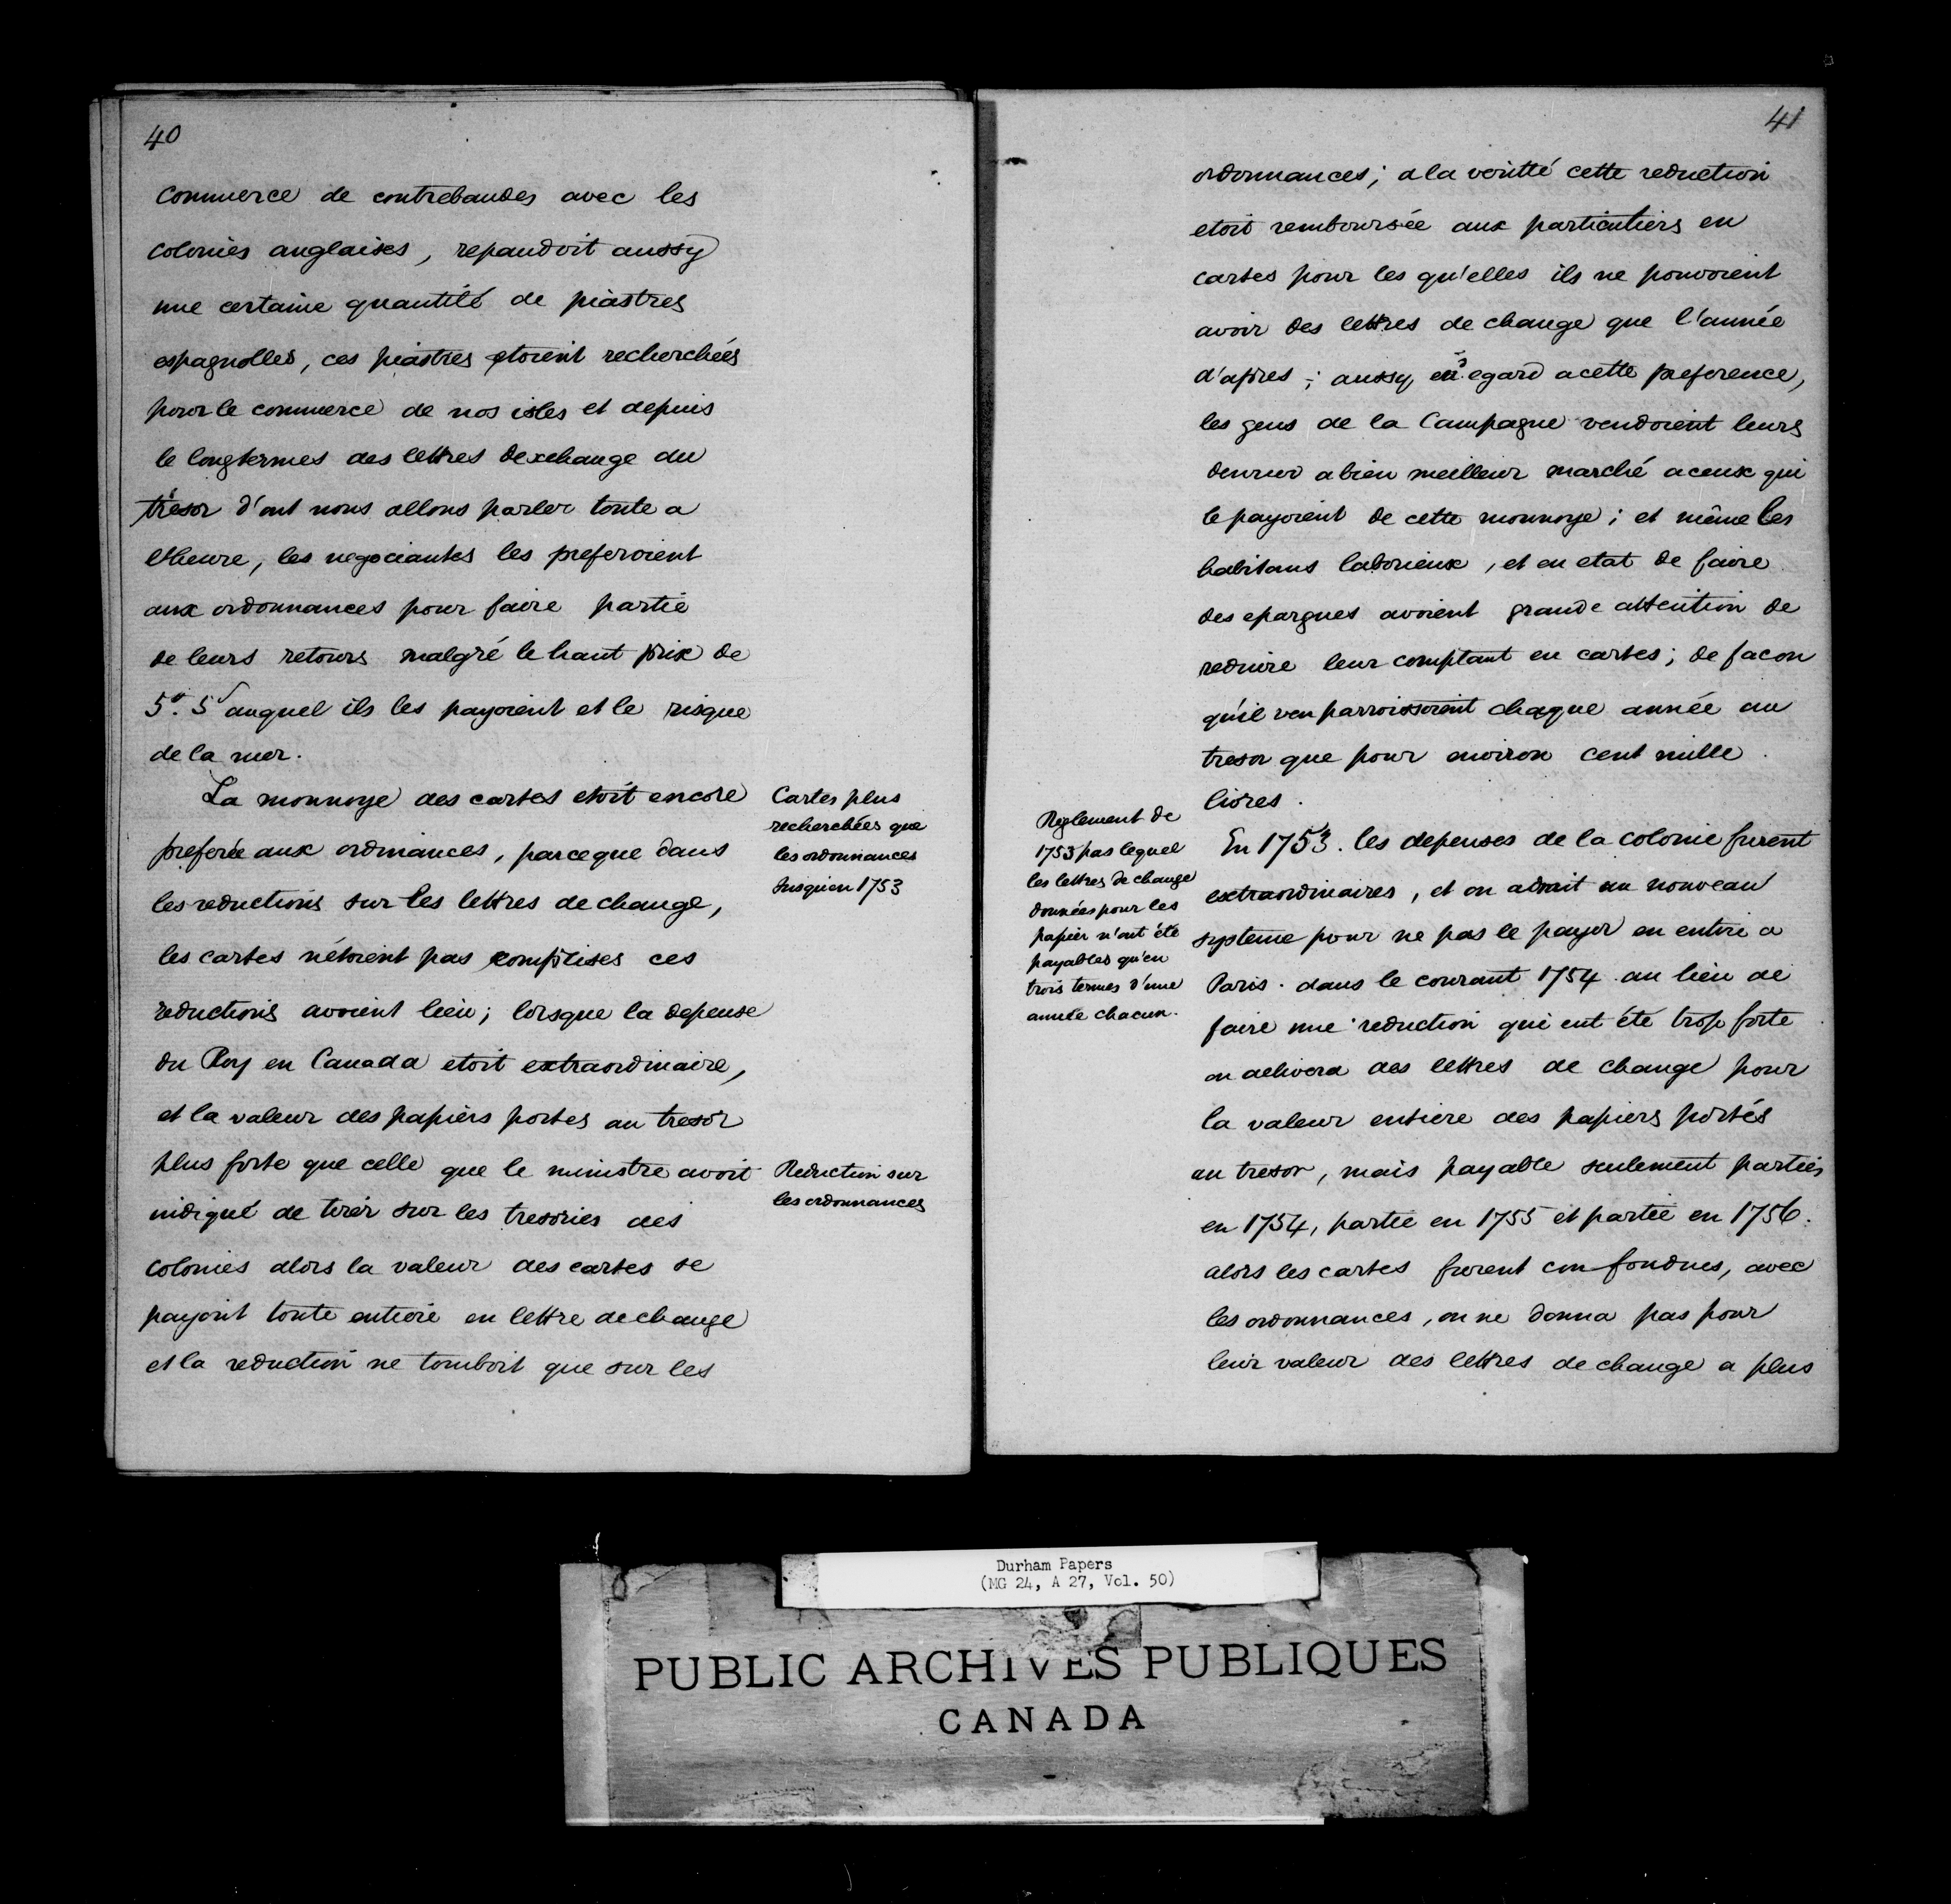 40
commerce de contrebandes avec les
colonies anglaises, repandoit aussy
une certaine quantité de piastres
espagnolles, ces piastres etoient recherchées
pour le commerce de nos isles et depuis
le longtermes des lettres dexchange du
trésor d'ont nous allons parler toute a
l'heure, les negociants les preferoient
aux ordonnances pour faire partie
de leurs retours malgré le haut prix de
5# 5s auquel ils les payoient et le risque
de la mer.
La monnoye des cartes etoit encore
preferée aux ordinances, parceque dans
les reductions sur les lettres de change,
les cartes nétoient pas comprises ces
reductions avoient lieu; lorsque la depense
du Roy en Canada etoit extraordinaire,
et la valeur des papiers portes au tresor
plus forte que celle que le ministre avoit
indiqué de tirer sur les tresories des
colonies alors la valeur des cartes se
payoit toute entiere en lettre de change
et la reduction ne tomboit que sur les
Cartes plus
recherchées que
les ordonnances
Jusqu'en 1753
Reduction sur
les ordonnances
41
ordonnances; a la veritté cette reduction
etoit remboursée aux particuliers en
cartes pour les qu'elles ils ne pouvoient
avoir des lettres de change que l'année
d'apres; aussy, en egard acette preference,
les gens de la Campagne vendoient leurs
a bien meilleur marché a ceux qui
le payoient de cette monnoye; et même les
habitans laborieux, et en etat de faire
des epargnes avoient grande attention de
reduire leur comptant en cartes; de facon
qu'il ven parroissoient chaque année au
tresor que pour cent mille
livres.
En 1753. les depenses de la colonie furent
extraordinaires, et on admit un nouveau
systeme pour ne pas le payer en entier a
Paris. dans le courant 1754 au lieu de
faire une reduction qui eut été trop forte
on delivera des lettres de change pour
la valeur entiere des papiers portés
au tresor, mais payable seulement parties
en 1754, partie en 1755 et partie en 1756.
alors les cartes furent confondues, avec
les ordonnances, on ne donna pas pour
leur valeur des lettres de change a plus
Reglement de
1753 pas lequel
les lettres de change
données pour les
papier n'ont été
payables qu'en
trois termes d'une
année chacun.
Durham Papers
(MG 24, A 27, Vol. 50)
PUBLIC ARCHIVES PUBLIQUES
CANADA